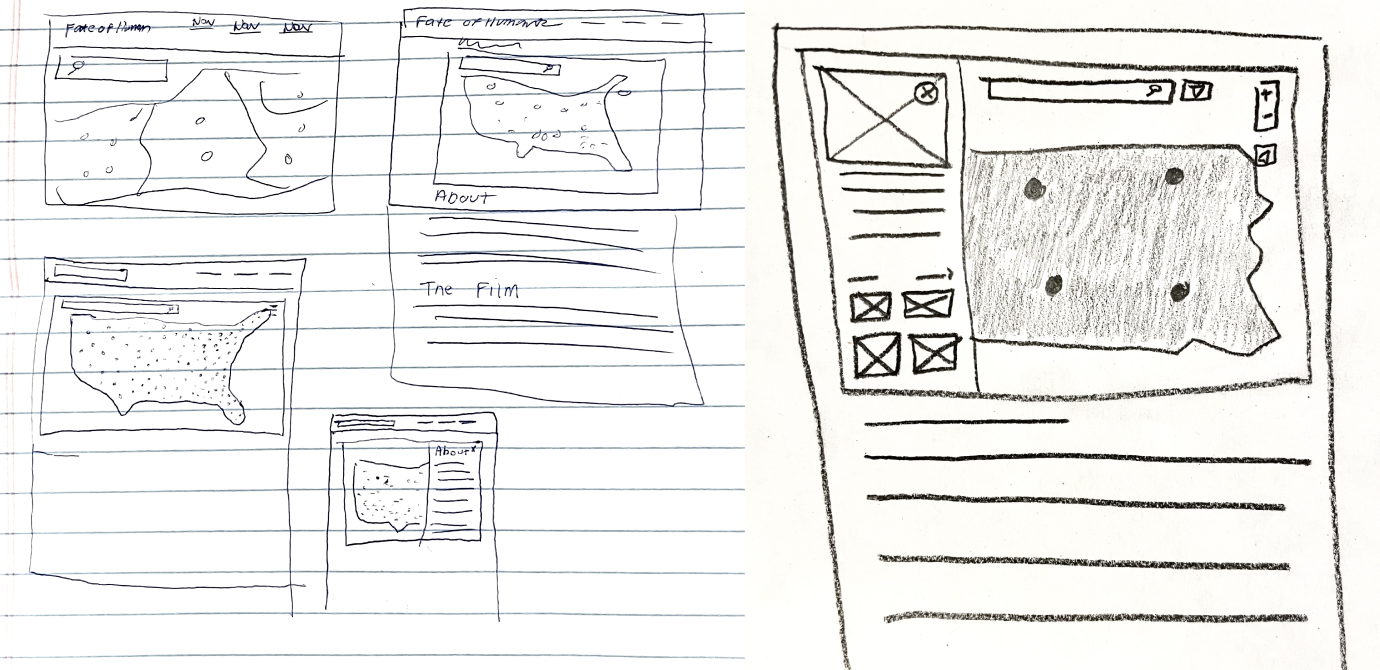 Fate of Human
Nav Nav Nav
Fate of Humans
About
The Film
About x
+
-